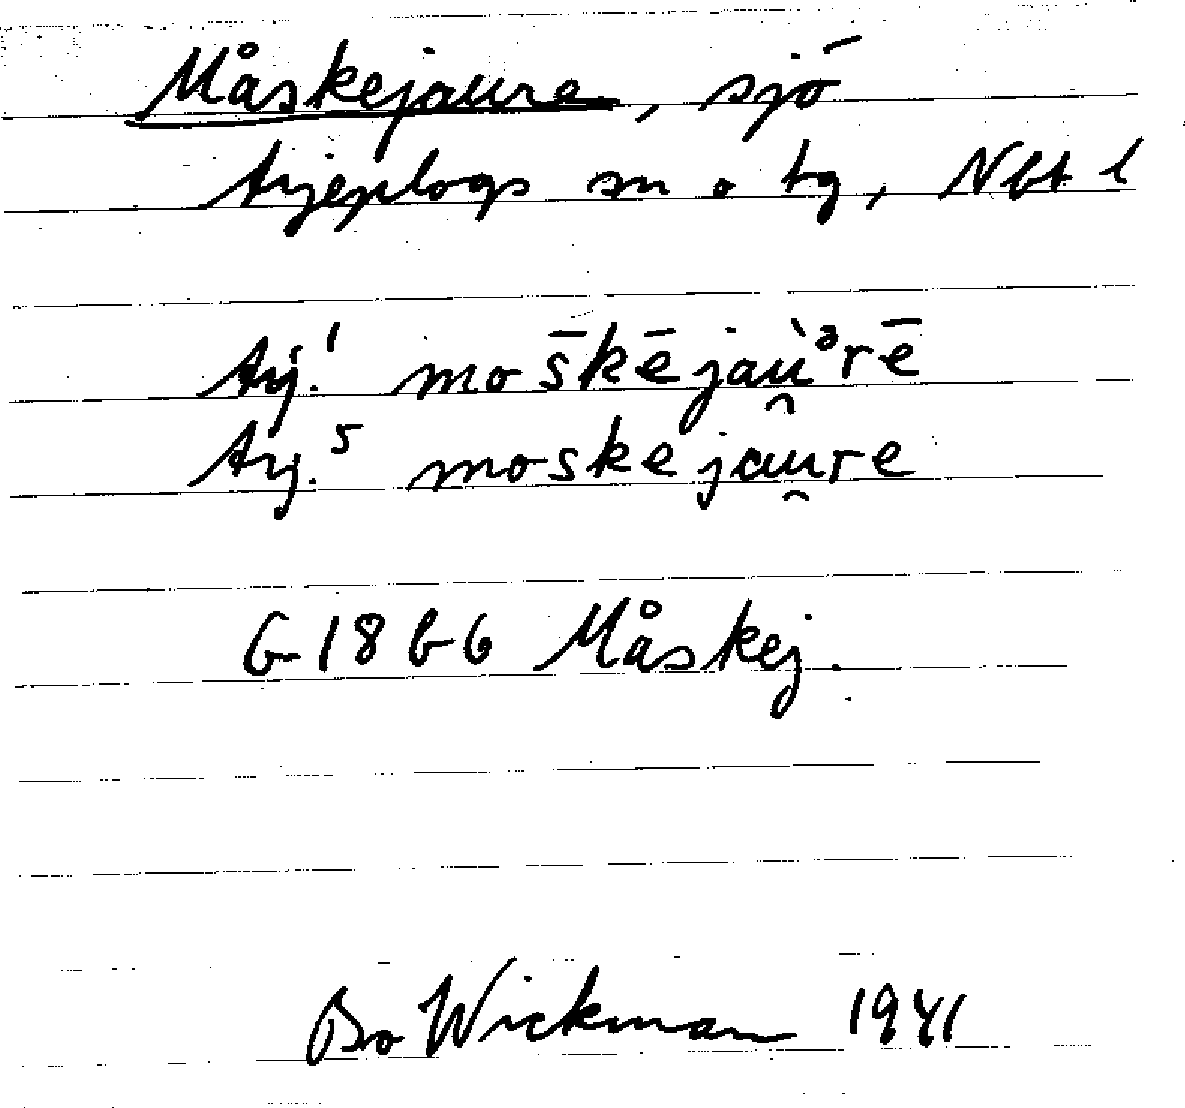 Måskejaure, sjö
Arjeplogs sn o tg, Nbt l
Arj.¹ mos̄kējaù̯ᵊrē
Arj.⁵ moskējau̯re
G 18 b-6 Måskej.
Bo Wickman 1941